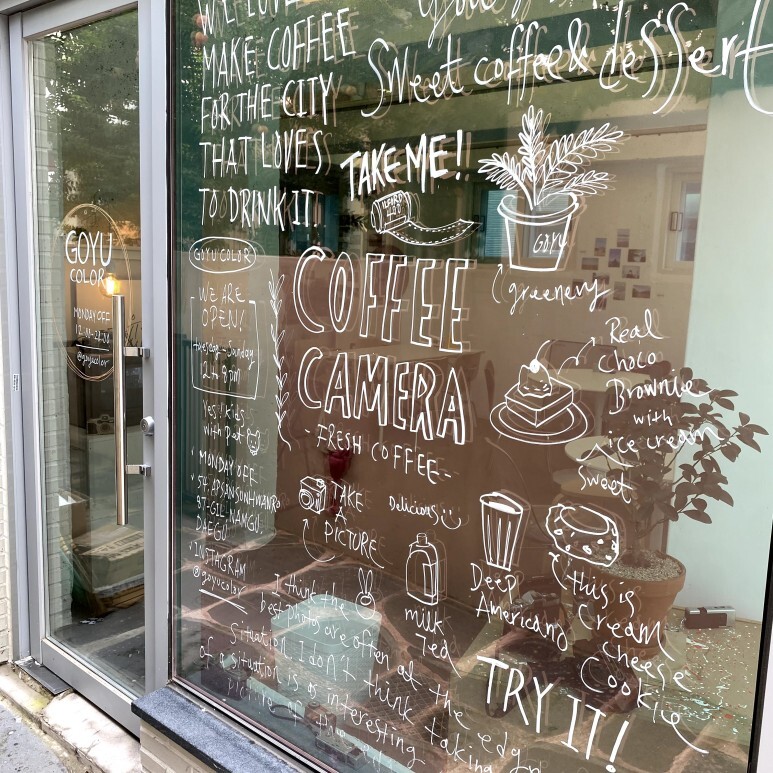 GOYU
COLOR
MONDAY OFF
@goyucolor
MAKE COFFEE
FOR THE CITY
THAT LOVES
TO DRINK IT.
Sweet coffee & dessert
TAKE ME!
ILFORD
400
GOYU
greenery
GOYU COLOR
WE ARE
OPEN!
tuesday-Sunday
12-8pm
Yes! kids
with Pet
COFFEE
CAMERA
- FRESH COFFEE -
Real
Choco
Brownie
with
ice cream
Sweet
MONDAY OFF
DAEGU
INSTAGRAM
@goyucolor
TAKE
A
PICTURE
Delicious
milk
Tea
Deep
Americano
this is
Cream
Cheese
Cookie
TRY IT!
I think the
best photos are often at the edge
Situation I don't think taking
of a situation is as interesting
picture of the edge